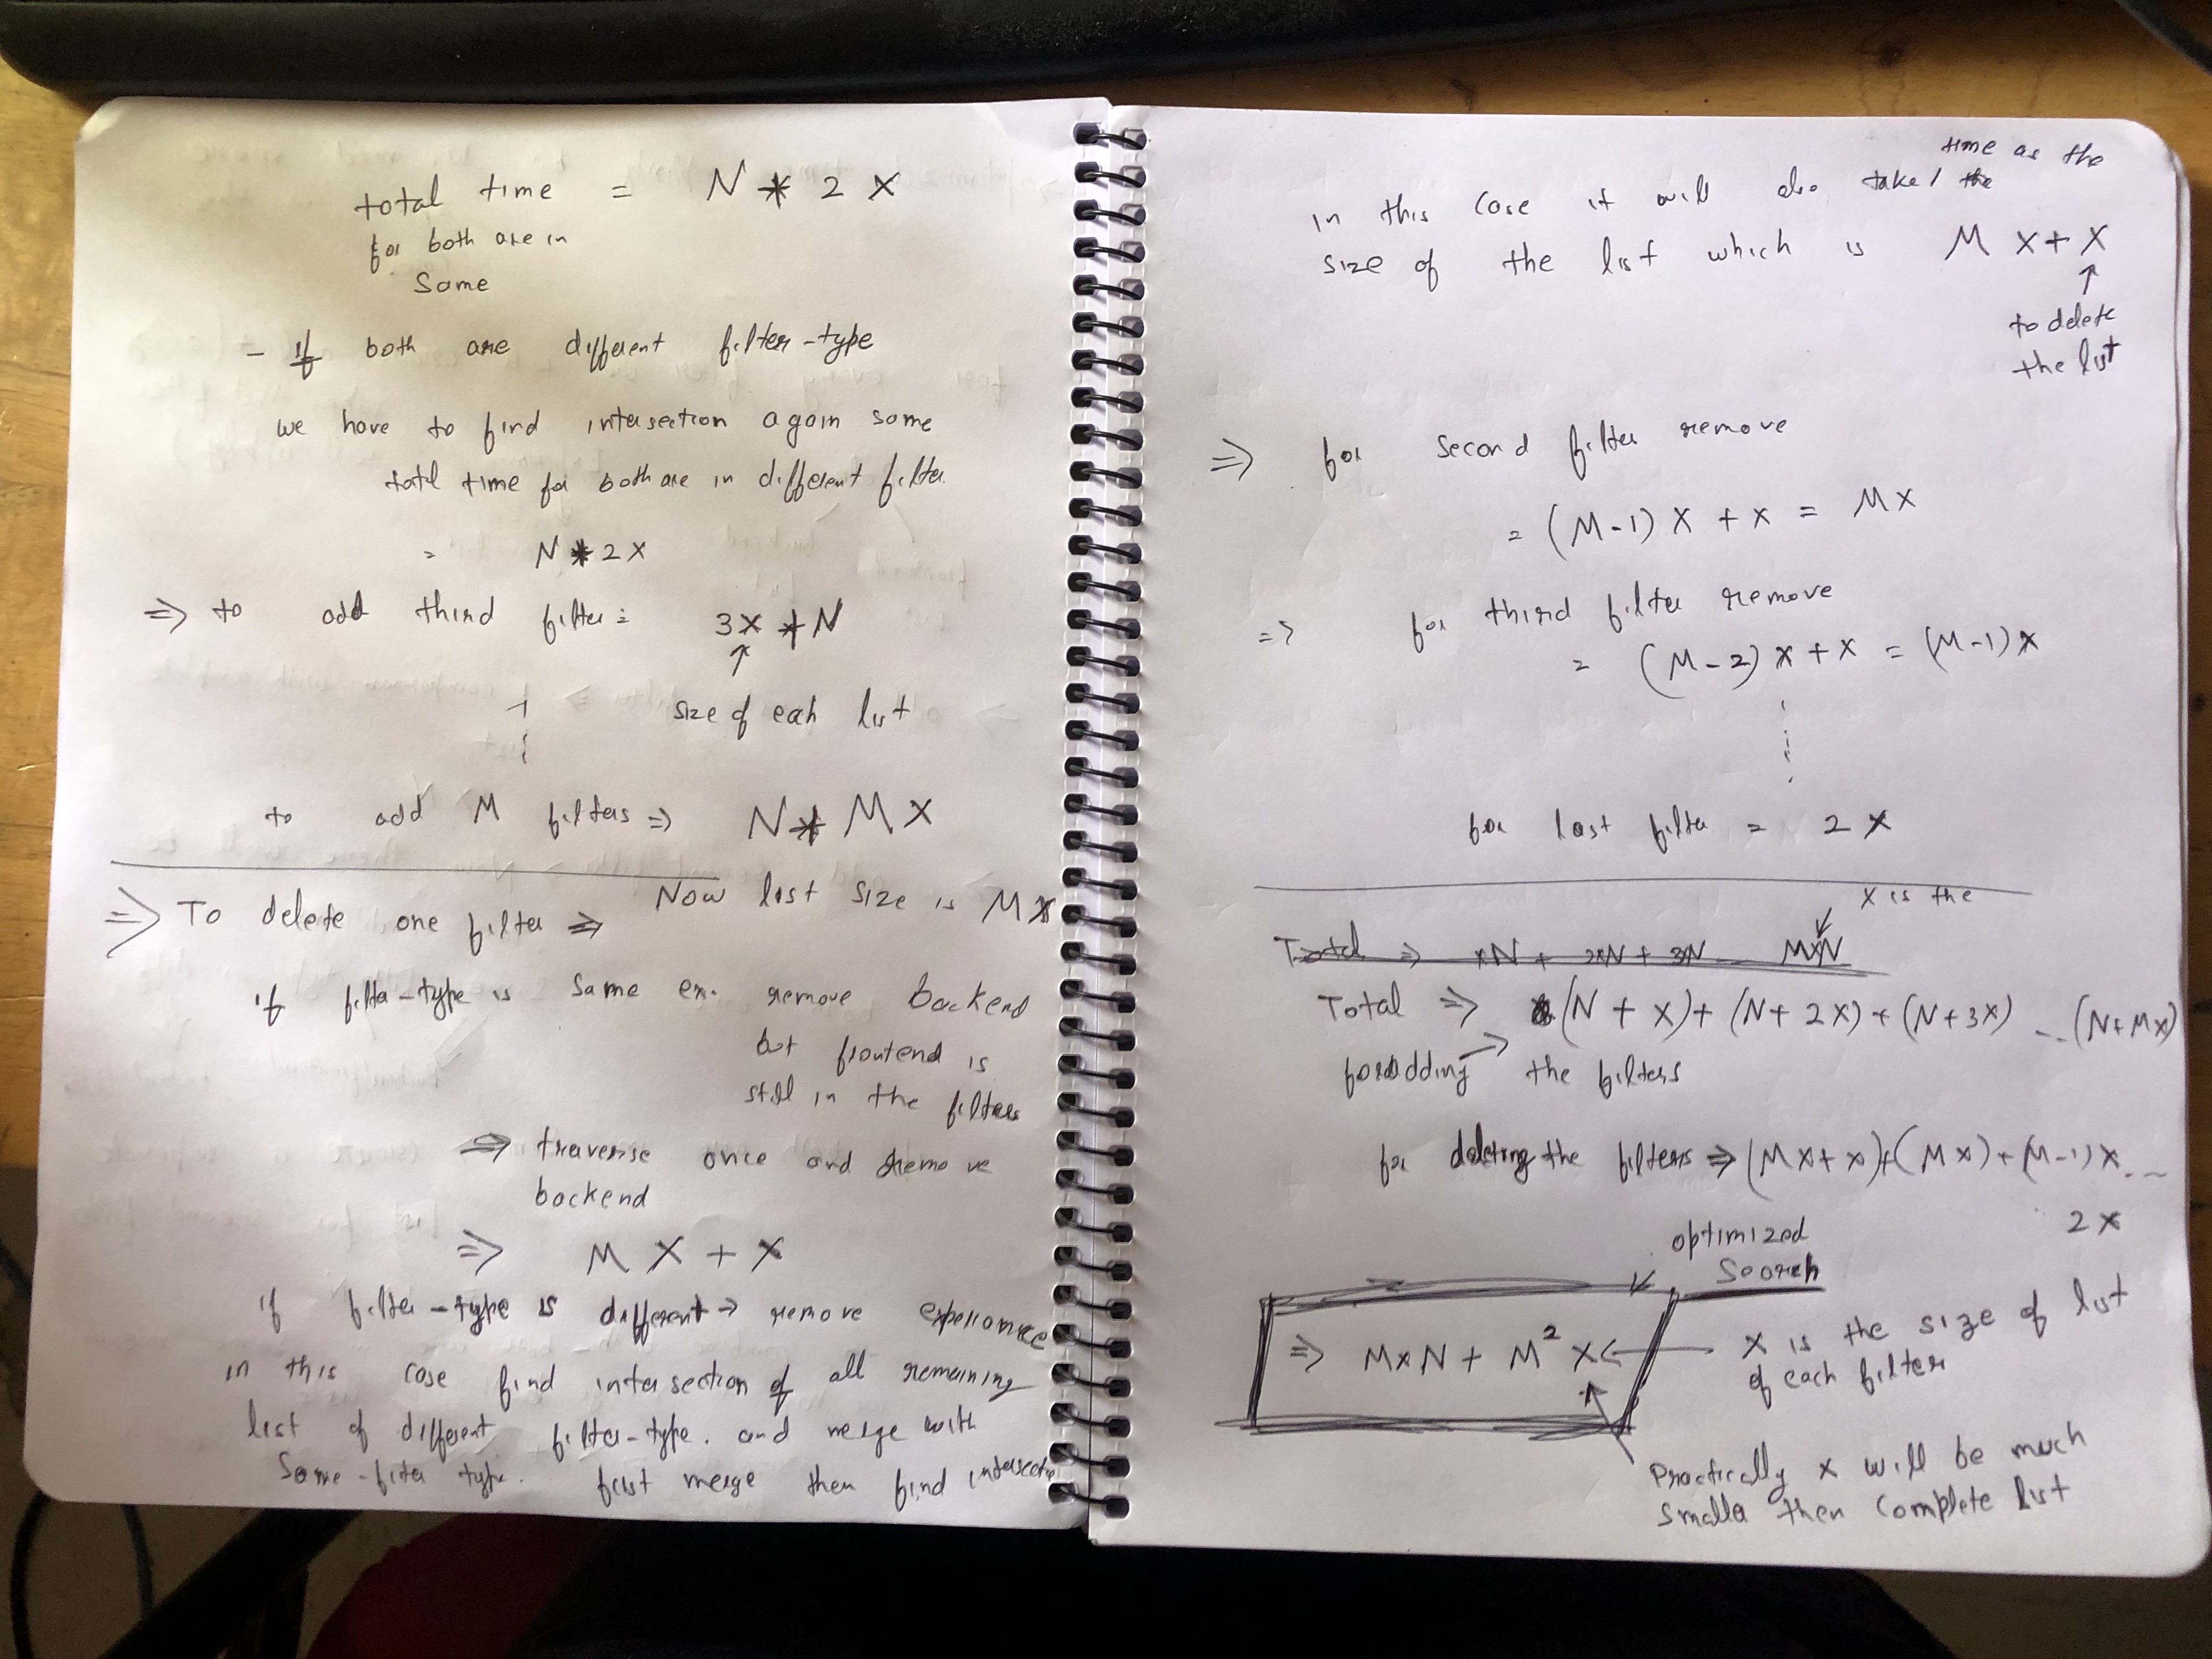 total time = N * 2 x
for both are in
same
- If both are different filter-type
we have to find intersection again same
total time for both are in different filter
= N * 2 x
=> to add third filter = 3x * N
size of each list
to add M filters => N * M X
=> To delete one filter => Now list size is Mx
if filter-type is same ex. remove backend
but frontend is
still in the filters
=> traverse once and remove
backend
=> M X + X
if filter-type is different -> remove
in this case find intersection of all remaining
list of different filter-type. and merge with
same-filter type. first merge then find
time as the
In this case it will also take the
size of the list which is M X + X
to delete
the list
=> for second filter remove
= (M-1) X + X = MX
=> for third filter remove
= (M-2) X + X = (M-1) X
for last filter = 2 X
x is the
Total => xN + 2xN + 3N MXN
Total => (N + X) + (N + 2X) + (N + 3X) -- (N + MX)
for adding -> the filters
for deleting the filters => (MX + x) + (MX) + (M-1)X. ~
2 x
optimized
Search
=> M x N + M² X <- x is the size of list
of each filter
Practically x will be much
smaller then complete list